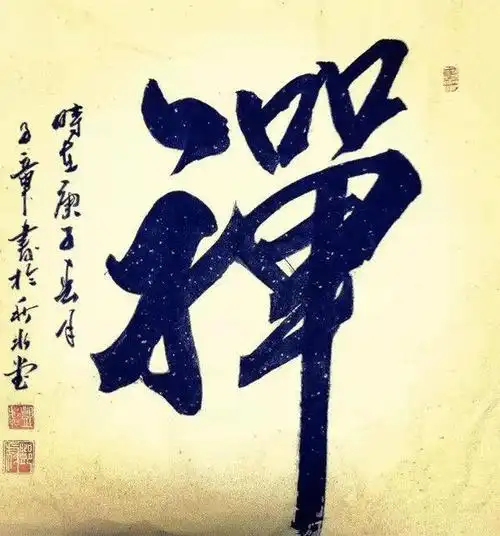 禪
時在庚子春月
子章書於秋水堂